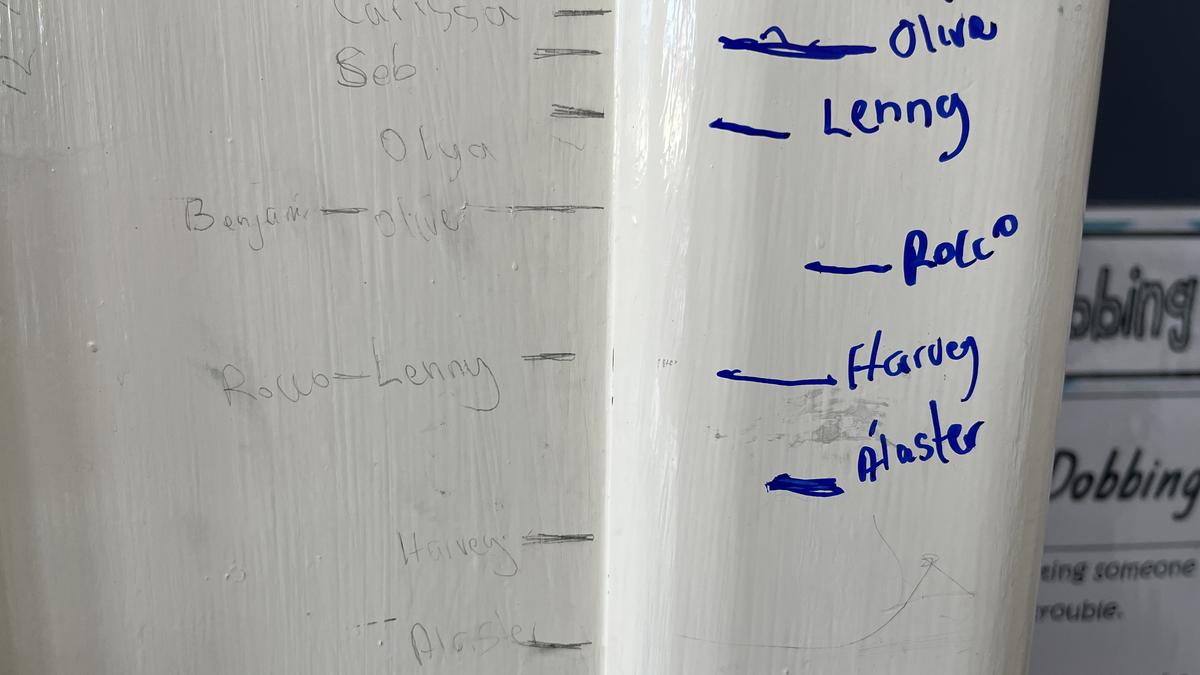 Carissa
Seb
Olya
Benjamin — Oliver
Rocco — Lenny
Harvey
Alaster
Oliver
Lenny
Rocco
Harvey
Alaster
bbing
Dobbing
eing someone
rouble.